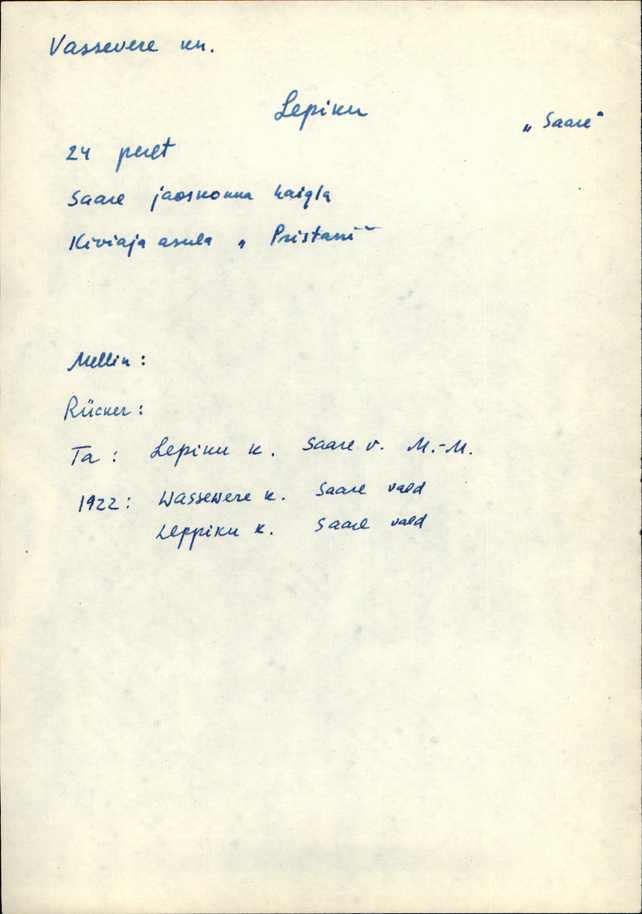 Vassevere kn.
Lepiku
„Saare"
24 peret
Saare jaoskonna haigla
Kiviaja asula „Pristani"
Mellin:
Rücker:
Ta: Lepiku k. Saare v. M.-M.
1922: Wassewere k. Saare vald
Leppiku k. Saare vald